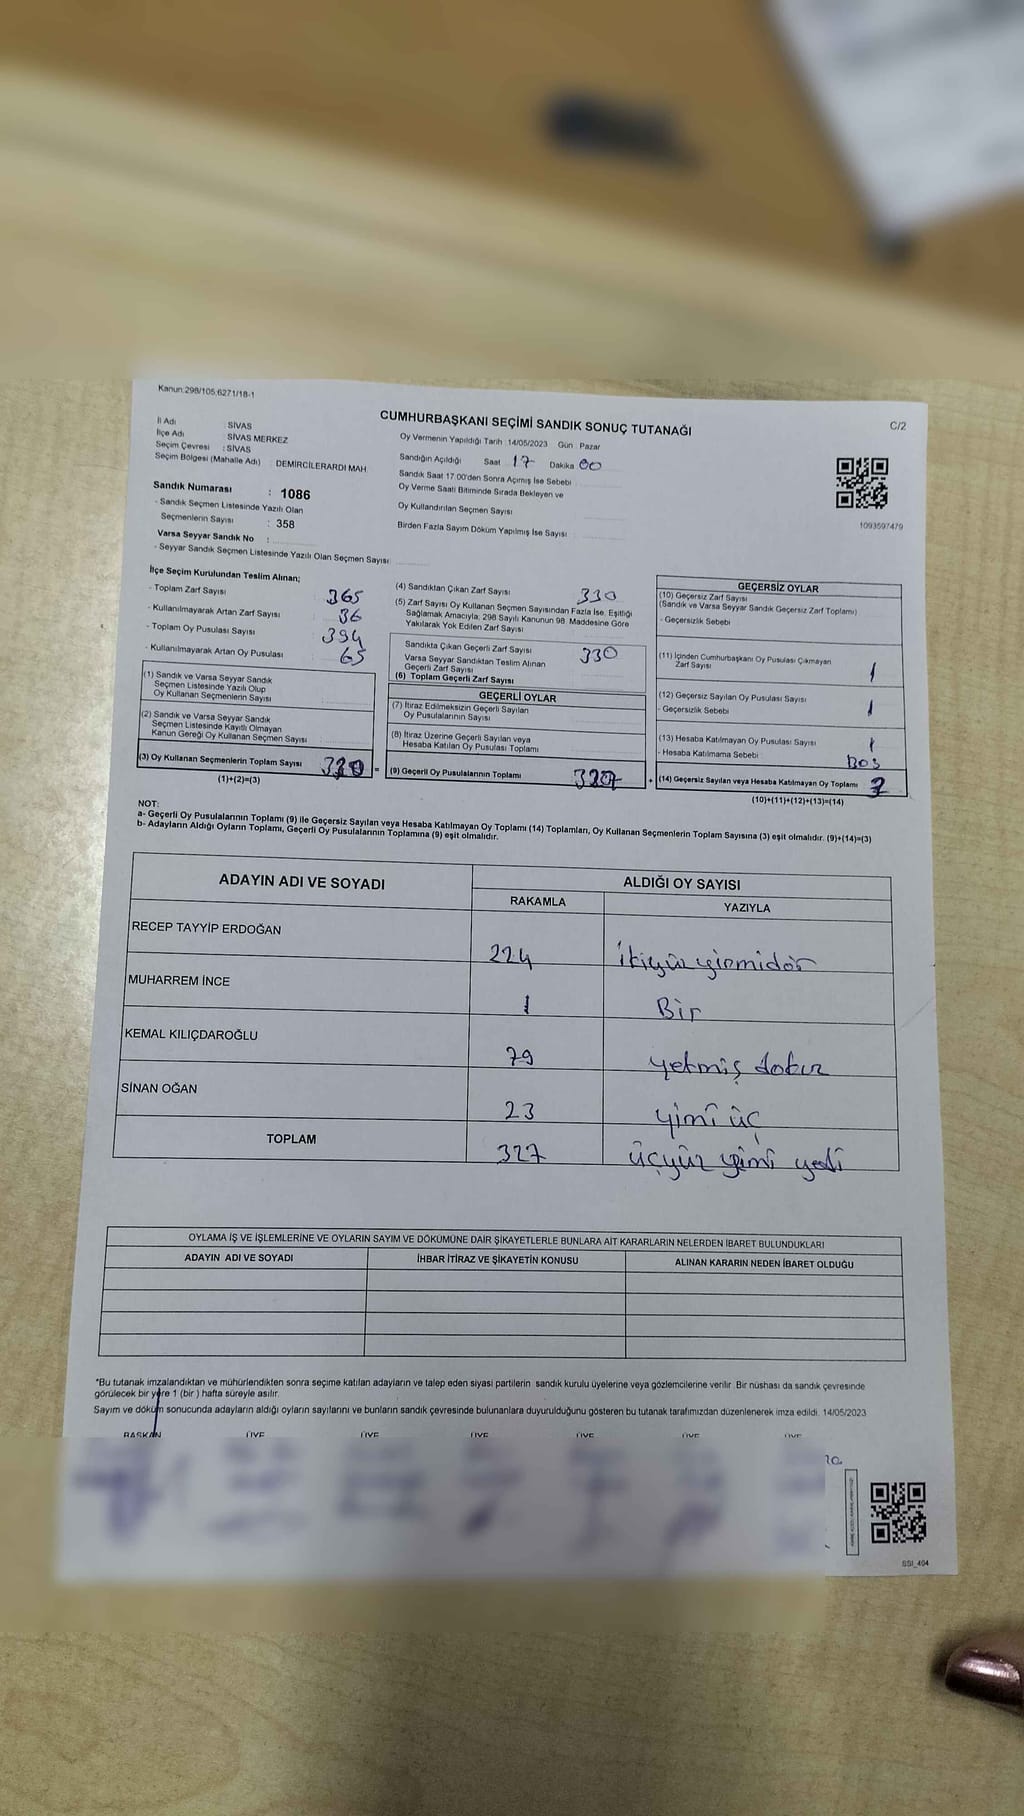 Kanun:298/105,6271/18-1
C/2
CUMHURBAŞKANI SEÇİMİ SANDIK SONUÇ TUTANAĞI
İl Adı : SİVAS
İlçe Adı : SİVAS MERKEZ
Seçim Çevresi : SİVAS
Seçim Bölgesi (Mahalle Adı) : DEMİRCİLERARDI MAH.
Sandık Numarası : 1086
- Sandık Seçmen Listesinde Yazılı Olan
Seçmenlerin Sayısı : 358
Varsa Seyyar Sandık No :
- Seyyar Sandık Seçmen Listesinde Yazılı Olan Seçmen Sayısı:
Oy Vermenin Yapıldığı Tarih :14/05/2023 Gün Pazar
Sandığın Açıldığı Saat 17 Dakika 00
Sandık Saat 17.00'den Sonra Açımış İse Sebebi
Oy Verme Saati Bitiminde Sırada Bekleyen ve
Oy Kullandırılan Seçmen Sayısı
Birden Fazla Sayım Döküm Yapılmış İse Sayısı
1093597479
İlçe Seçim Kurulundan Teslim Alınan;
- Toplam Zarf Sayısı 365
- Kullanılmayarak Artan Zarf Sayısı 36
- Toplam Oy Pusulası Sayısı 394
- Kullanılmayarak Artan Oy Pusulası 65
(1) Sandık ve Varsa Seyyar Sandık
Seçmen Listesinde Yazılı Olup
Oy Kullanan Seçmenlerin Sayısı
(2) Sandık ve Varsa Seyyar Sandık
Seçmen Listesinde Kayıtlı Olmayan
Kanun Gereği Oy Kullanan Seçmen Sayısı
(3) Oy Kullanan Seçmenlerin Toplam Sayısı 330 =
(1)+(2)=(3)
(4) Sandıktan Çıkan Zarf Sayısı 330
(5) Zarf Sayısı Oy Kullanan Seçmen Sayısından Fazla İse, Eşitliği
Sağlamak Amacıyla; 298 Sayılı Kanunun 98. Maddesine Göre
Yakılarak Yok Edilen Zarf Sayısı
Sandıkta Çıkan Geçerli Zarf Sayısı 330
Varsa Seyyar Sandıktan Teslim Alınan
Geçerli Zarf Sayısı
(6) Toplam Geçerli Zarf Sayısı
GEÇERLİ OYLAR
(7) İtiraz Edilmeksizin Geçerli Sayılan
Oy Pusulalarının Sayısı
(8) İtiraz Üzerine Geçerli Sayılan veya
Hesaba Katılan Oy Pusulası Toplamı
(9) Geçerli Oy Pusulalarının Toplamı 327 +
GEÇERSİZ OYLAR
(10) Geçersiz Zarf Sayısı
(Sandık ve Varsa Seyyar Sandık Geçersiz Zarf Toplamı)
- Geçersizlik Sebebi
(11) İçinden Cumhurbaşkanı Oy Pusulası Çıkmayan
Zarf Sayısı 1
(12) Geçersiz Sayılan Oy Pusulası Sayısı 1
- Geçersizlik Sebebi
(13) Hesaba Katılmayan Oy Pusulası Sayısı 1
- Hesaba Katılmama Sebebi BOŞ
(14) Geçersiz Sayılan veya Hesaba Katılmayan Oy Toplamı 3
(10)+(11)+(12)+(13)=(14)
NOT:
a- Geçerli Oy Pusulalarının Toplamı (9) ile Geçersiz Sayılan veya Hesaba Katılmayan Oy Toplamı (14) Toplamları, Oy Kullanan Seçmenlerin Toplam Sayısına (3) eşit olmalıdır. (9)+(14)=(3)
b- Adayların Aldığı Oyların Toplamı, Geçerli Oy Pusulalarının Toplamına (9) eşit olmalıdır.
ADAYIN ADI VE SOYADI ALDIĞI OY SAYISI
RAKAMLA YAZIYLA
RECEP TAYYİP ERDOĞAN 224 ikiyüz yirmidör
MUHARREM İNCE 1 Bir
KEMAL KILIÇDAROĞLU 79 yetmiş dokuz
SİNAN OĞAN 23 yimi üç
TOPLAM 327 üçyüz yimi yedi
OYLAMA İŞ VE İŞLEMLERİNE VE OYLARIN SAYIM VE DÖKÜMÜNE DAİR ŞİKAYETLERLE BUNLARA AİT KARARLARIN NELERDEN İBARET BULUNDUKLARI
ADAYIN ADI VE SOYADI İHBAR İTİRAZ VE ŞİKAYETİN KONUSU ALINAN KARARIN NEDEN İBARET OLDUĞU
*Bu tutanak imzalandıktan ve mühürlendikten sonra seçime katılan adayların ve talep eden siyasi partilerin sandık kurulu üyelerine veya gözlemcilerine verilir. Bir nüshası da sandık çevresinde
görülecek bir yere 1 (bir ) hafta süreyle asılır.
Sayım ve döküm sonucunda adayların aldığı oyların sayılarını ve bunların sandık çevresinde bulunanlara duyurulduğunu gösteren bu tutanak tarafımızdan düzenlenerek imza edildi. 14/05/2023
BAŞKAN ÜYE ÜYE ÜYE ÜYE ÜYE ÜYE
SSI_404